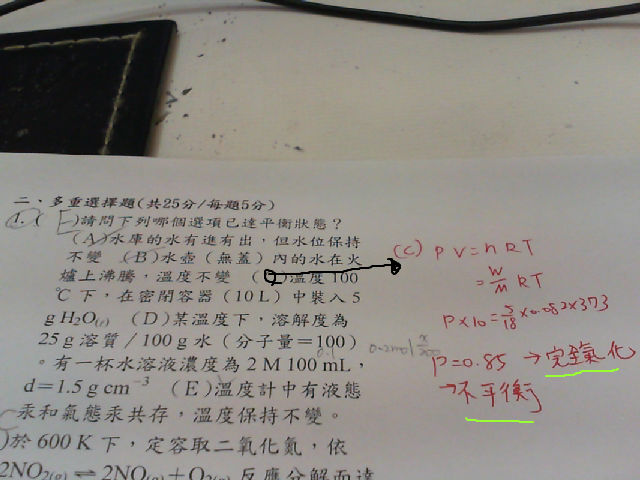 二、多重選擇題(共25分/每題5分)
1. ( E )請問下列哪個選項已達平衡狀態？
(A)水庫的水有進有出，但水位保持
不變 (B)水壺（無蓋）內的水在火
爐上沸騰，溫度不變 (C)溫度 100
℃ 下，在密閉容器（10 L）中裝入 5
g H₂O(l) (D)某溫度下，溶解度為
25 g 溶質／100 g 水（分子量＝100）
。有一杯水溶液濃度為 2 M 100 mL，
d＝1.5 g cm⁻³ (E)溫度計中有液態
汞和氣態汞共存，溫度保持不變。
)於 600 K 下，定容取二氧化氮，依
2NO₂(g) ⇌ 2NO(g)＋O₂(g) 反應分解而達
(C) PV=nRT
=W/M RT
P×10=5/18×0.082×373
P=0.85 →完全氣化
→不平衡
0.1
0.2mol